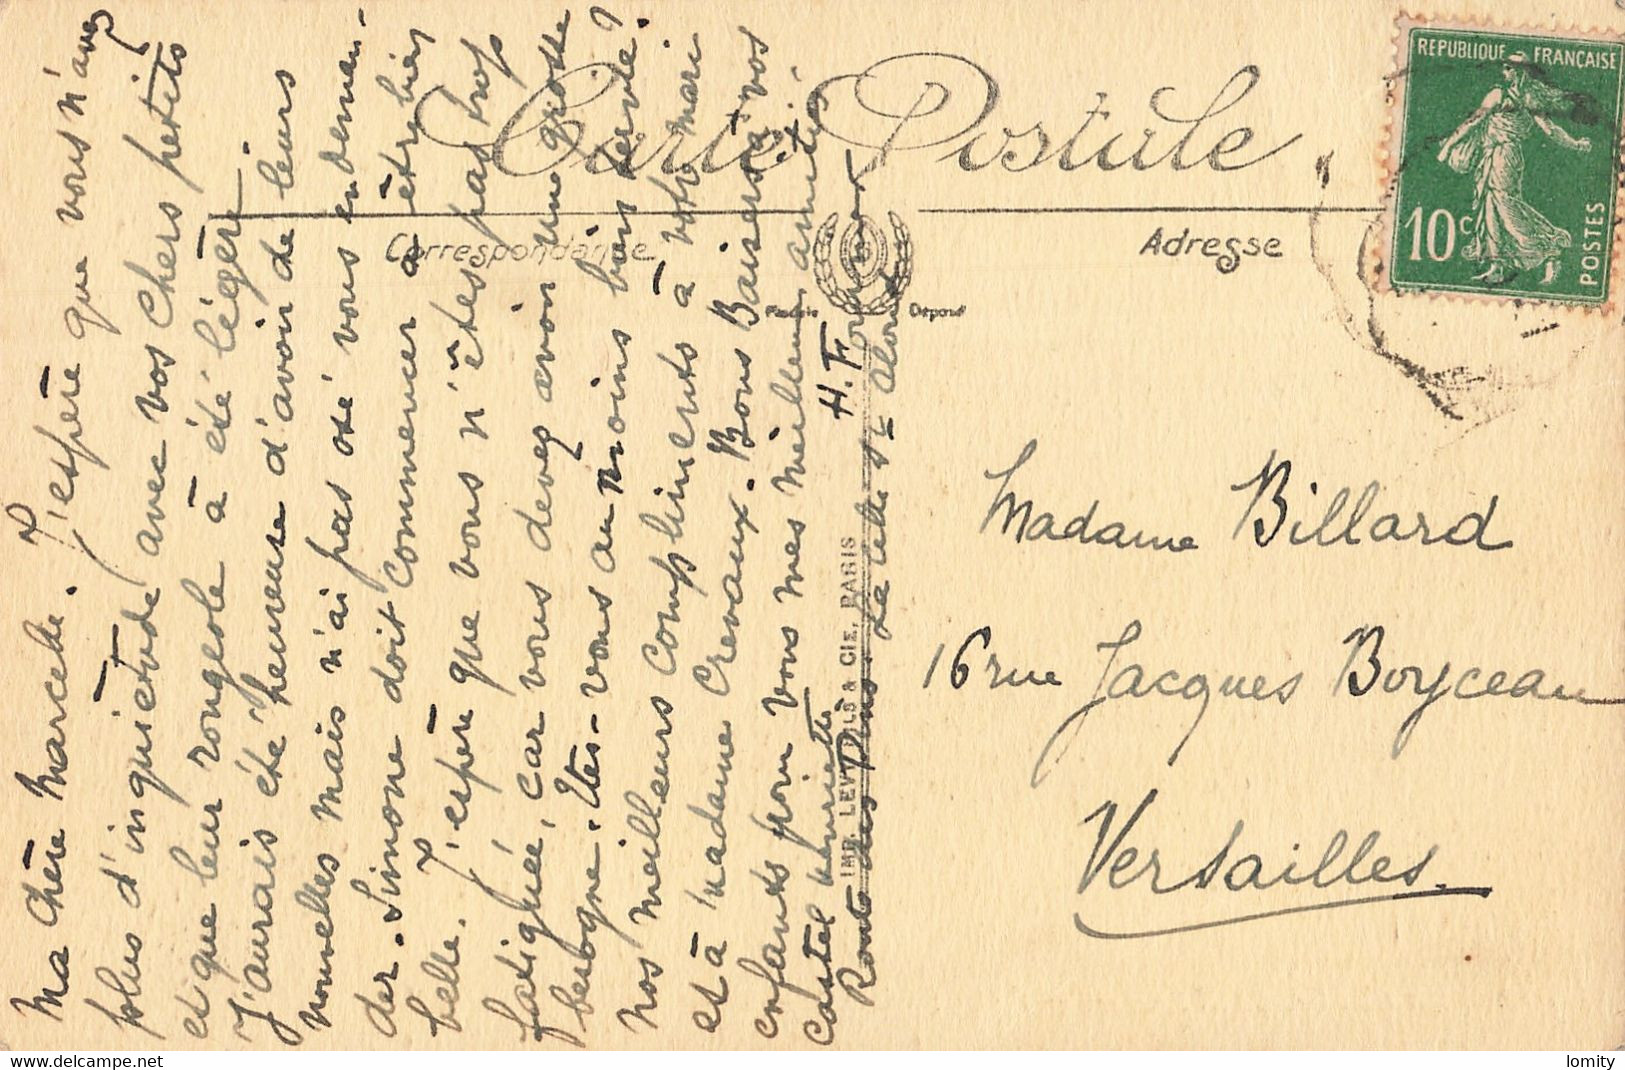 Carte Postale
Correspondance
Adresse
Déposé
REPUBLIQUE FRANÇAISE
10c
POSTES
Ma Chère Marcelle. J'espère que vous n'avez
plus d'inquiétude avec vos Chers petits
et que leur rougeole à été légère
J'aurais été heureuse d'avoir de leurs
nouvelles mais n'ai pas osé vous en deman-
der. Simone doit commencer à être bien
belle. J'espère que vous n'êtes pas trop
fatiguée, car vous devez avoir une grosse
besogne. Etes-vous au moins bien servie?
Nos meilleurs compliments à votre mari
et à Madame Crevaux. Bons Baisers à vos
enfants pour vous mes meilleures amitiés.
H. F
Castel Henriette
Route des Pins. La Celle St Cloud
IMP. LEVY FILS & CIE, PARIS
Madame Billard
16 rue Jacques Boyceau
Versailles
lomity